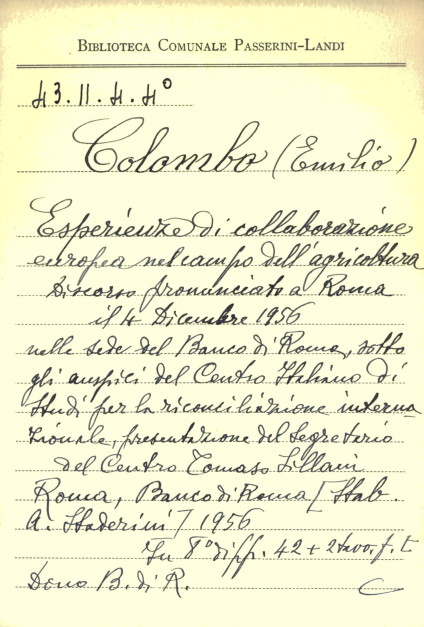 BIBLIOTECA COMUNALE PASSERINI-LANDI
43.II.4.4°
Colombo (Emilio)
Esperienze di collaborazione
europea nel campo dell'agricoltura
Discorso pronunciato a Roma
il 4 Dicembre 1956
nella sede del Banco di Roma, sotto
gli auspici del Centro Italiano di
Studi per la riconciliazione interna
zionale, presentazione del Segretario
del Centro Tomaso Sillani
Roma, Banco di Roma [Stab.
A. Staderini] 1956
In 8° di pp. 42 + 2 tavv. f. t.
Dono B. di R.